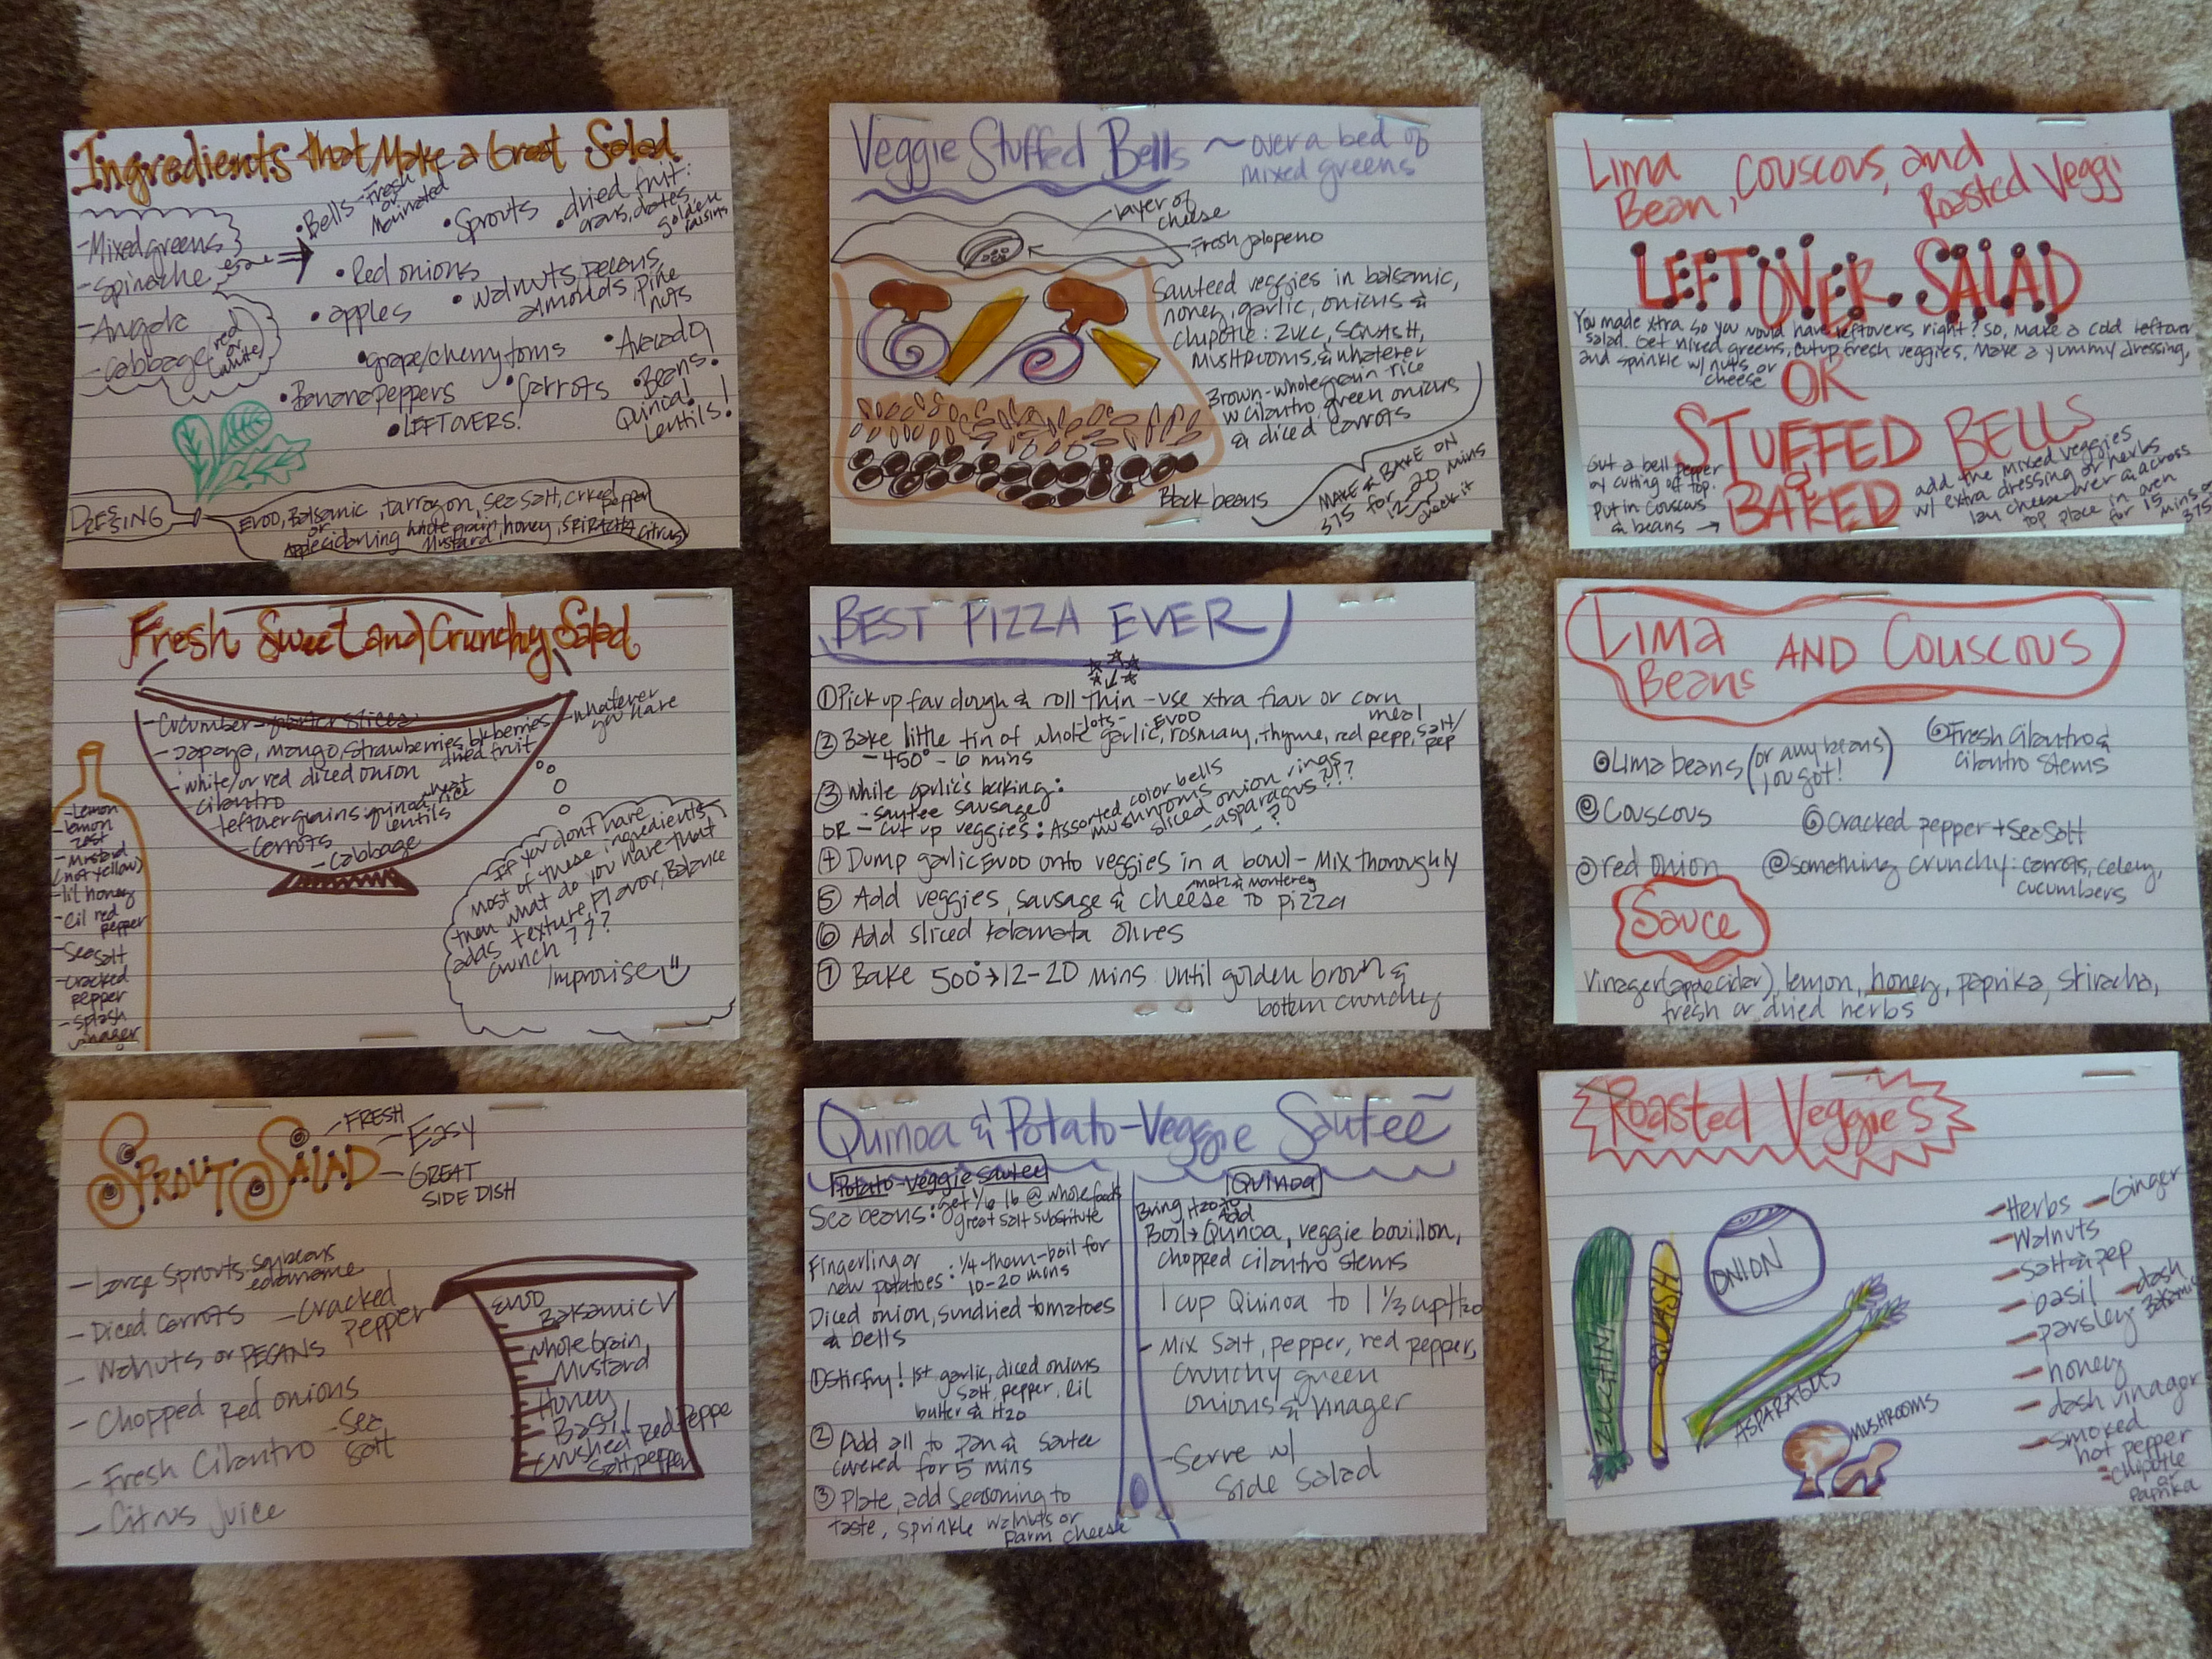 Ingredients that Make a Great Salad
- Mixed greens
- Spinache
- Arugala
- Cabbage (red or white)
• Bells - Fresh or Marinated
• Sprouts
• dried fruit: crans, dates, golden raisins
• Red onions
• walnuts, pecans, almonds, pine nuts
• apples
• grape/cherry toms
• Avocado
• Banana peppers
• Carrots
• Beans!
Quinoa!
Lentils!
• LEFTOVERS!
DRESSING
EVOO, Balsamic, tarragon, sea salt, crked pepper
or
whole grain Mustard, honey, SRIRACHA, citrus
Veggie Stuffed Bells ~ over a bed of
mixed greens
layer of
cheese
Fresh jalopeno
Sauteed veggies in balsamic,
honey, garlic, onions &
chipotle: ZUCC, SQUASH,
MUSHROOMS, & whatever
Brown-whole grain rice
w cilantro, green onions
& diced carrots
Black beans
MAKE & BAKE ON
375 for 12-20 mins
check it
Lima
Bean, Couscous, and
Roasted Veggi
LEFTOVER SALAD
You made xtra so you would have leftovers right? So, make a cold leftover
salad. Get mixed greens, cut up fresh veggies, make a yummy dressing,
and sprinkle w/ nuts or
cheese
OR
STUFFED BELLS
&
BAKED
Gut a bell pepper
by cutting off top.
Put in couscous
& beans →
add the mixed veggies
w/ extra dressing or herbs
lay cheese over & across
top place in oven
for 15 mins
375
Fresh Sweet and Crunchy Salad
- Cucumber -
- papaya, mango, strawberries, blkberries, dried fruit
- whatever
you have
- white/or red diced onion
- cilantro
- leftover grains: quinoa, wheat, rice
lentils
- Carrots
- Cabbage
- Lemon
- lemon
zest
- Mustard
(not yellow)
- lil honey
- lil red
pepper
- Sea salt
- Cracked
pepper
- splash
vinager
If you don't have
most of these ingredients,
then what do you have that
adds texture, flavor, Balance
Crunch???
Improvise
BEST PIZZA EVER
① Pick up fav dough & roll thin - use xtra flour or corn
meal
② Bake little tin of whole garlic, -lots- EVOO, rosmary, thyme, red pepp, salt/pep
- 450° - 6 mins
③ While garlic's baking:
- sautee sausage
OR - cut up veggies: Assorted color bells
mushrooms
sliced onion rings
- asparagus???
- ?
④ Dump garlic EVOO onto veggies in a bowl - Mix thoroughly
⑤ Add veggies, sausage & cheese motz & monterey to pizza
⑥ Add sliced kalamata olives
⑦ Bake 500° → 12-20 mins until golden brown &
bottom crunchy
Lima
Beans AND Couscous
Lima beans (or any beans
you got!)
Fresh Cilantro &
cilantro stems
Couscous
Cracked pepper + Sea Salt
red onion
something crunchy: carrots, celery,
cucumbers
Sauce
Vinager (apple cidar), lemon, honey, paprika, sriracha,
fresh or dried herbs
SPROUT SALAD
- FRESH
- Easy
- GREAT
SIDE DISH
- Large Sprouts: soybeans
edamame
- Diced Carrots
- Cracked
Pepper
- Walnuts or PECANS
- Chopped red onions
- Fresh Cilantro
- Sea
Salt
- Citrus juice
EVOO
Balsamic V
Whole Grain
Mustard
Honey
Basil
Crushed Red Peppe
Salt, pepper
Quinoa & Potato-Veggie Sautee
Potato-Veggie Sautee
Sea beans: get 1/6 lb @ whole foods
great salt substitute
Fingerling or
new potatoes: 1/4 them - boil for
10-20 mins
Diced onion, sundried tomatoes
& bells
① Stirfry! 1st garlic, diced onions
salt, pepper, lil
butter & H2O
② Add all to pan & sautee
covered for 5 mins
③ Plate, add seasoning to
taste, sprinkle walnuts or
Parm cheese
Quinoa
Bring H2O to
Boil → Add Quinoa, veggie bouillon,
chopped cilantro stems
1 cup Quinoa to 1 1/3 cup H2O
- Mix Salt, pepper, red pepper,
crunchy green
onions & vinager
- Serve w/
Side Salad
Roasted Veggies
ZUCCHINI
SQUASH
ONION
ASPARAGUS
MUSHROOMS
- Herbs
- Ginger
- Walnuts
- salt & pep
- basil
- dash
Balsamic
- parsley
- honey
- dash vinager
- smoked
hot pepper
- Chipotle
or
Paprika